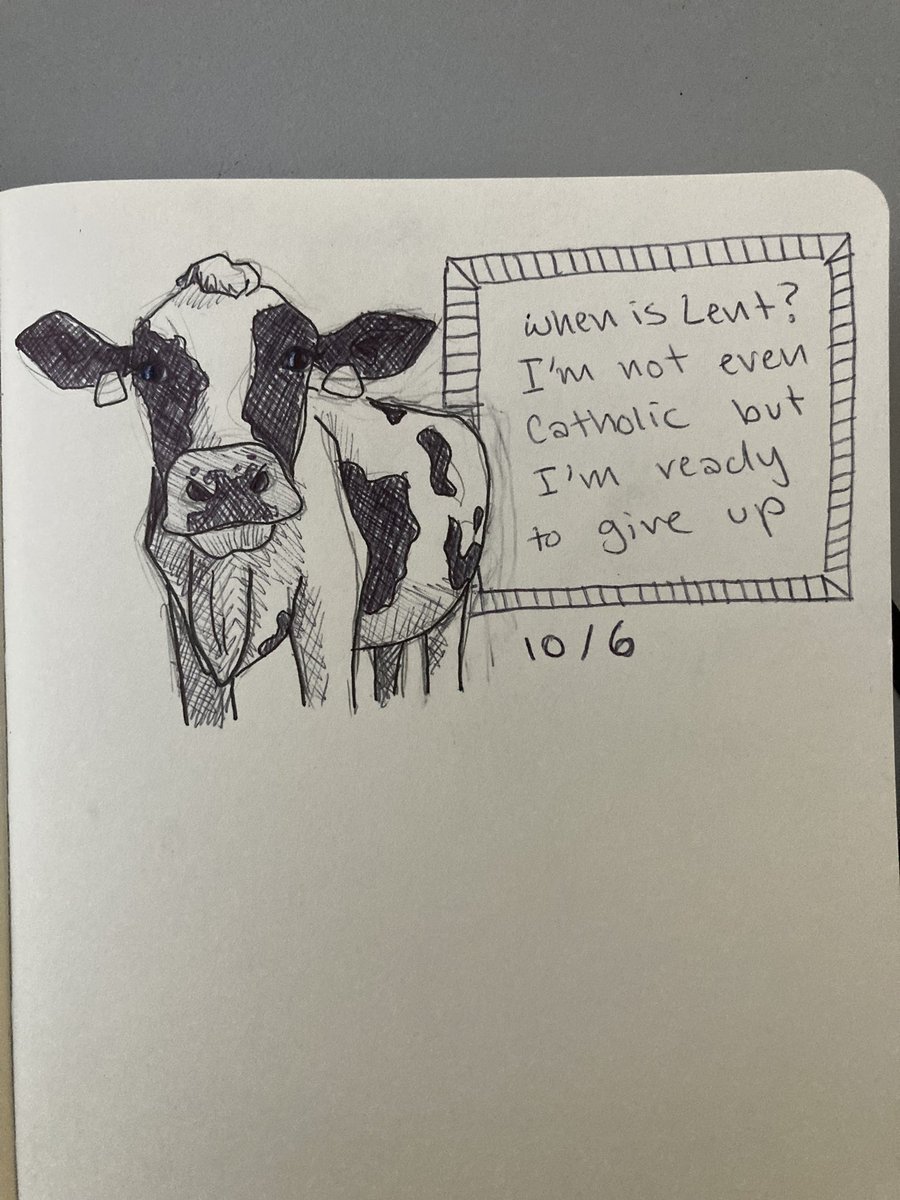 when is Lent?
I'm not even
Catholic but
I'm ready
to give up
10/6